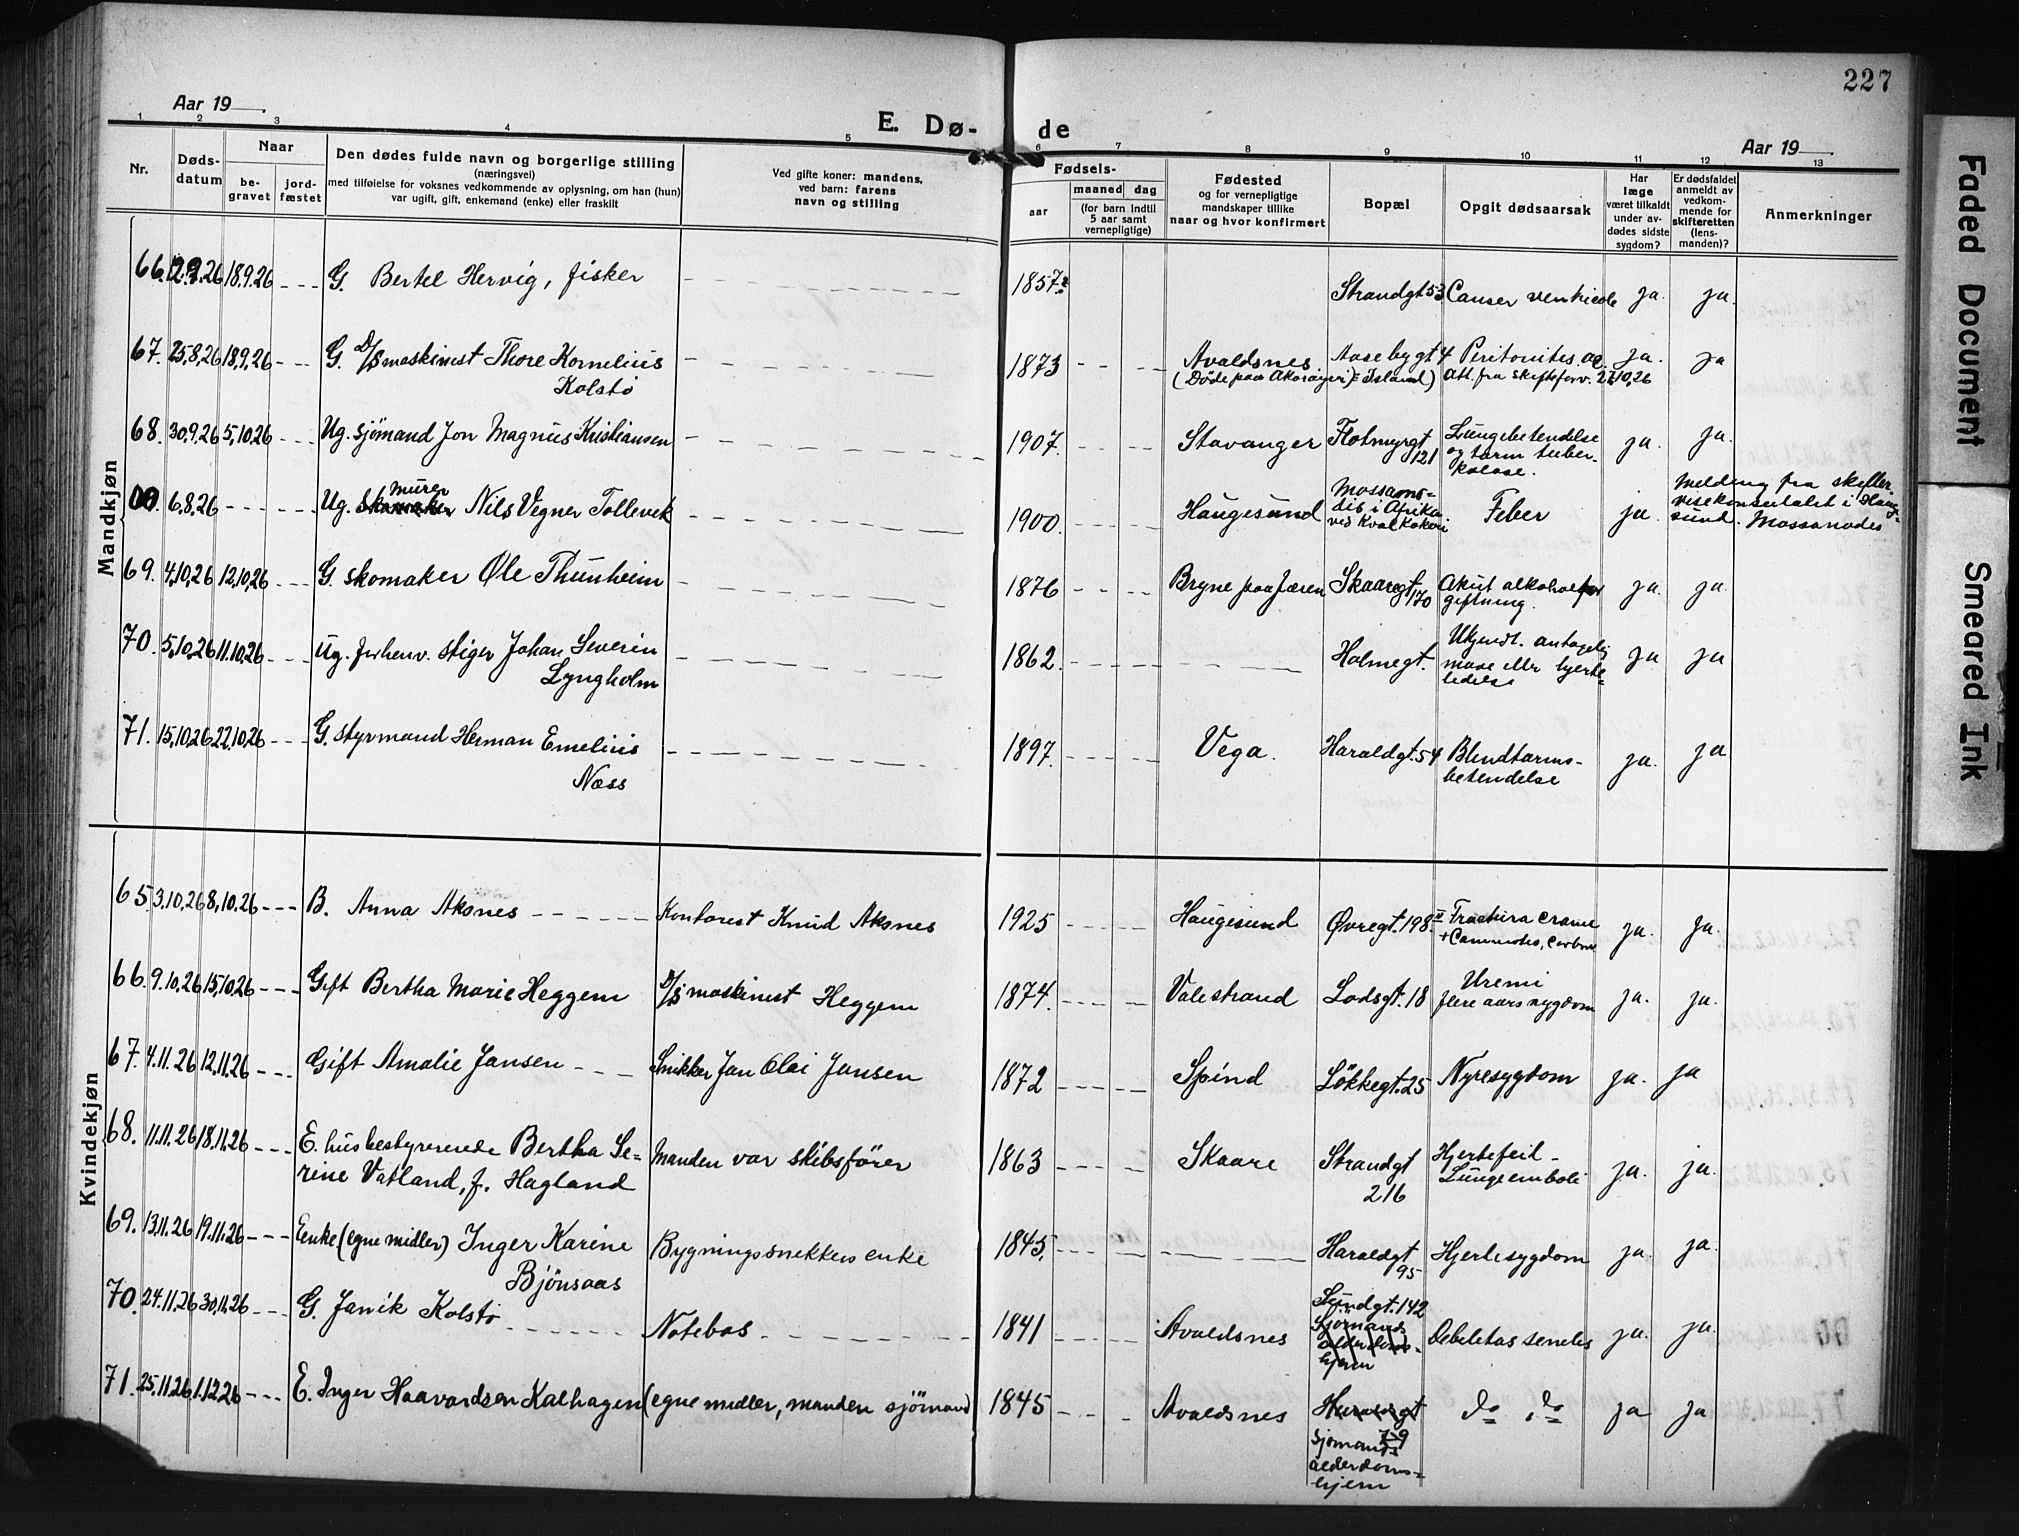 227
Aar 19
E. Dø-
de
Aar 19
1 2 3 4 5 6 7 8 9 10 11 12 13
Nr.
Døds-
datum
Naar
be-
gravet
jord-
fæstet
Den dødes fulde navn og borgerlige stilling
(næringsvei)
med tilføielse for voksnes vedkommende av oplysning, om han (hun)
var ugift, gift, enkemand (enke) eller fraskilt
Ved gifte koner: mandens,
ved barn: farens
navn og stilling
Fødsels-
aar
maaned
dag
(for barn indtil
5 aar samt
vernepligtige)
Fødested
og for vernepligtige
mandskaper tillike
naar og hvor konfirmert
Bopæl
Opgit dødsaarsak
Har
læge
været tilkaldt
under av-
dødes sidste
sygdom?
Er dødsfaldet
anmeldt av
vedkom-
mende for
skifteretten
(lens-
manden)?
Anmerkninger
Mandkjøn
66. 18.9.26 G. Bertel Hervig, fisker 1857 Strandgt 53 Canser ventricole ja. ja.
67. 25,8,26 18,9,26 G. D/S maskinist Thore Kornelius
Kolstø
1873 Avaldsnes
Aasebygt 4 Peritonites. ja. ja
68. 30,9,26 5,10,26 Ug. sjømand Jon Magnus Kristiansen 1907. Stavanger Flotmyrgt
121
Lungebetendelse
og tarm tuber-
kolose.
ja. ja.
00. 6,8,26 Ug. skomaker murer Nils Vegner Tollevik 1900. Haugesund
Mossamo-
dis i Afrika
ved Kval
Feber ja.
Melding fra
visekonsulatet i Haug-
sund. Mossamodes
69. 4,10,26 12,10,26 G. skomaker Ole Thunheim 1876 Bryne paa Jæren Skaaregt
170
Akut alkoholfor
giftning.
ja. ja.
70. 5,10,26 11.10,26 Ug. forhenv. stiger Johan Severin
Lyngholm
1862 Holmegt.
Ukjendt. antagelig
mave eller hjerte-
lidelse
ja ja
71. 15,10,26 22,10,26 G. styrmand Herman Emelius
Næss
1897. Vega. Haraldgt. 54 Blindtarms-
betendelse
ja. ja
Kvindekjøn
65. 3,10,26 8,10.26 B. Anna Aksnes Kontorest Knud Aksnes 1925 Haugesund Øvregt. 198 II Fractura crane
ja. ja.
66. 9.10,26 15,10,26 Gift Bertha Marie Heggem D/S maskinist Heggem 1874. Valestrand Lodsgt. 18 Uremi
flere aars sygdom
ja. ja.
67. 4.11.26 12.11.26 Gift Amalie Jansen Snikker Jan Olai Jansen 1872 Spind Løkkegt. 25 Nyresygdom ja. ja
68. 11.11.26 18.11.26 E. husbestyrerende Bertha Se-
rine Vatland, f. Hagland
Manden var skibsfører 1863 Skaare Strandgt
216
Hjertefeil -
Lungeemboli
ja. ja.
69. 13.11.26 19.11.26 Enke (egne midler) Inger Karine
Bjønsaas
Bygningssnekkers enke 1845. Haraldgt
95
Hjertesygdom ja. ja.
70. 24.11.26 30,11.26 G. Janik Kolstø Notebas 1841 Avaldsnes Sundgt. 142
Sjømands
alderdoms-
hjem
Debeletas seneles ja. ja.
71. 25.11.26 1.12.26 E. Inger Haavardsen Kalhagen (egne midler, manden sjømand) 1845 Avaldsnes Haraldgt
sjømands
alderdoms-
hjem
do do ja ja
Faded Document
Smeared Ink